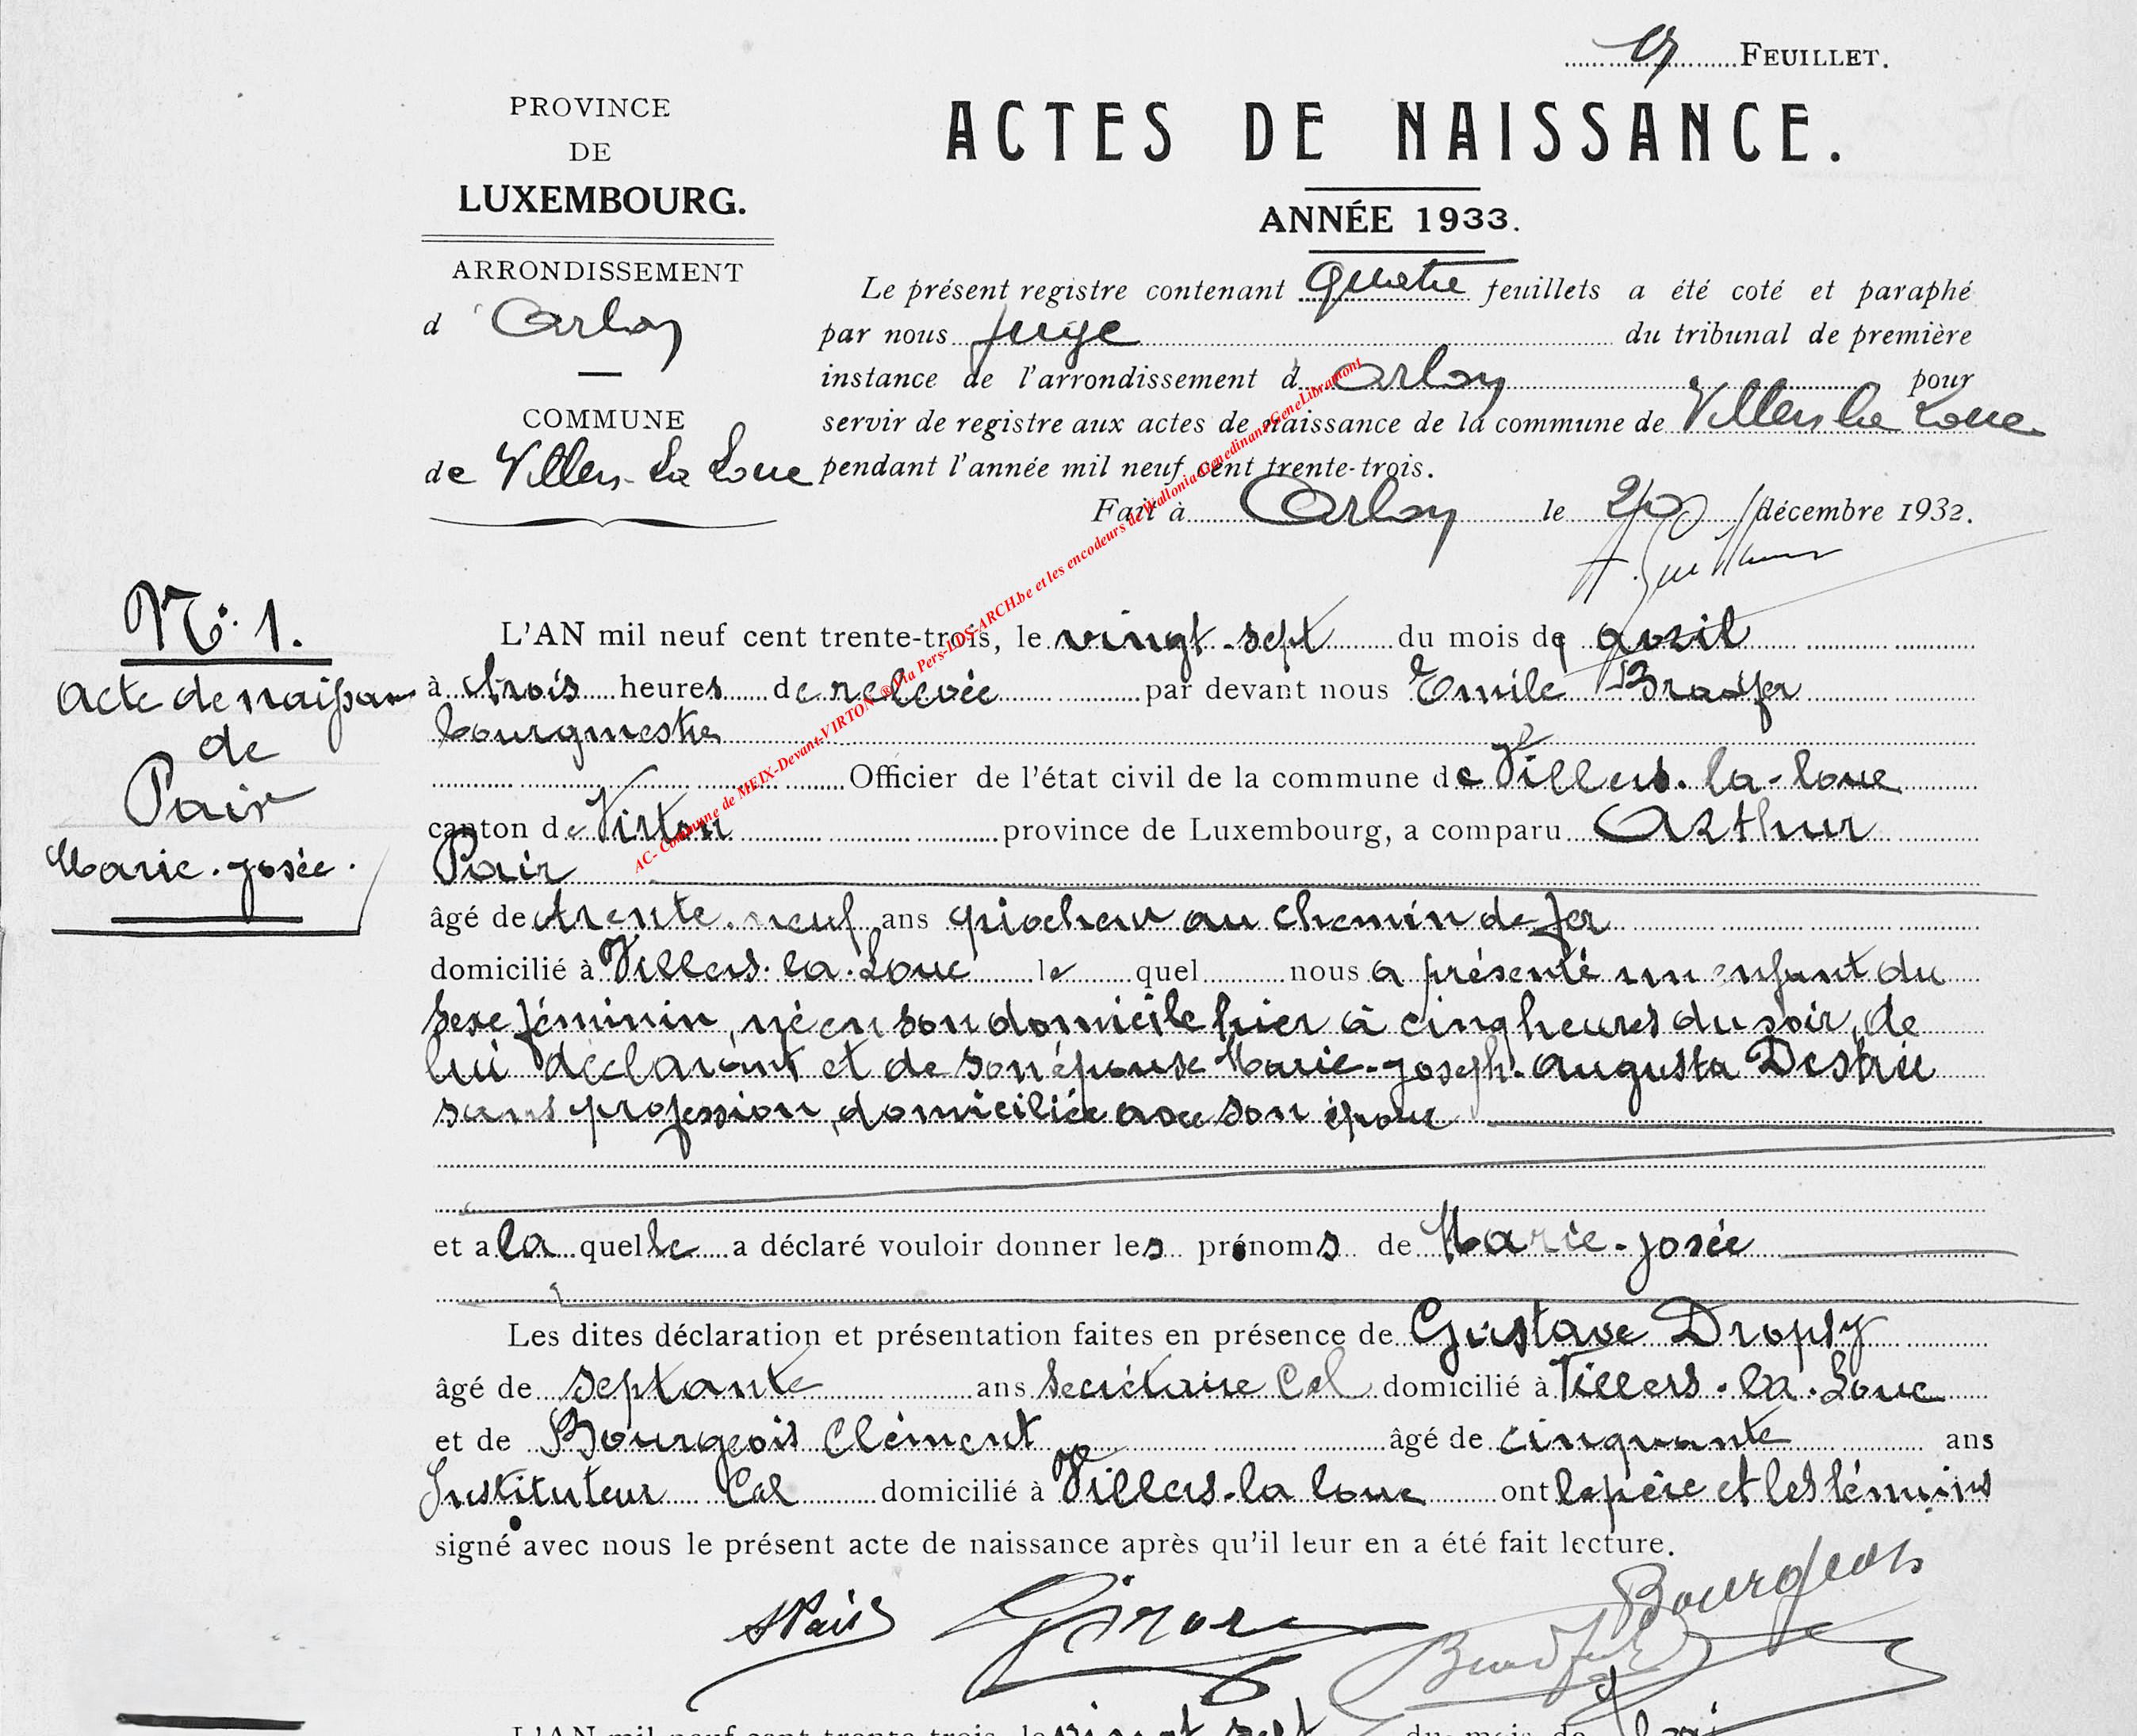 FEUILLET.
PROVINCE
DE
LUXEMBOURG.
ARRONDISSEMENT
d' Arlon
COMMUNE
de Villers-La Loue
ACTES DE NAISSANCE.
ANNÉE 1933.
Le présent registre contenant quatre feuillets a été coté et paraphé
par nous juge du tribunal de première
instance de l'arrondissement d'Arlon pour
servir de registre aux actes de naissance de la commune de Villers la Loue
pendant l'année mil neuf cent trente-trois.
Fait à Arlon le 20 décembre 1932.
N° 1.
Acte de naissan
de
Pair
Marie-Josée.
L'AN mil neuf cent trente-trois, le vingt-sept du mois de avril
à trois heures de relevée par devant nous Emile
bourgmestre
Officier de l'état civil de la commune de Villers-la-Loue
canton de Virton province de Luxembourg, a comparu Arthur
Pair
âgé de trente-neuf ans piocheur au chemin de fer
domicilié à Villers-la-Loue le quel nous a présenté un enfant du
sexe féminin, né en son domicile hier à cinq heures du soir, de
lui déclarant et de son épouse Marie-Joseph-Augusta Destrée
sans profession, domiciliée avec son époux
et a la quelle a déclaré vouloir donner les prénoms de Marie-Josée
Les dites déclaration et présentation faites en présence de Gustave Dropsy
âgé de septante ans secrétaire Cal domicilié à Villers-la-Loue
et de Bourgeois Clément âgé de cinquante ans
Instituteur Cal domicilié à Villers-la-Loue ont le père et les témoins
signé avec nous le présent acte de naissance après qu'il leur en a été fait lecture.
APair
Bourgeois
L'AN mil neuf cent trente-trois, le vingt sept du mois de
AC- Commune de MEIX-Devant-VIRTON ® Via Pers-LDS-ARCH.be et les encodeurs de Wallonia-Genedinant-GeneLibramont